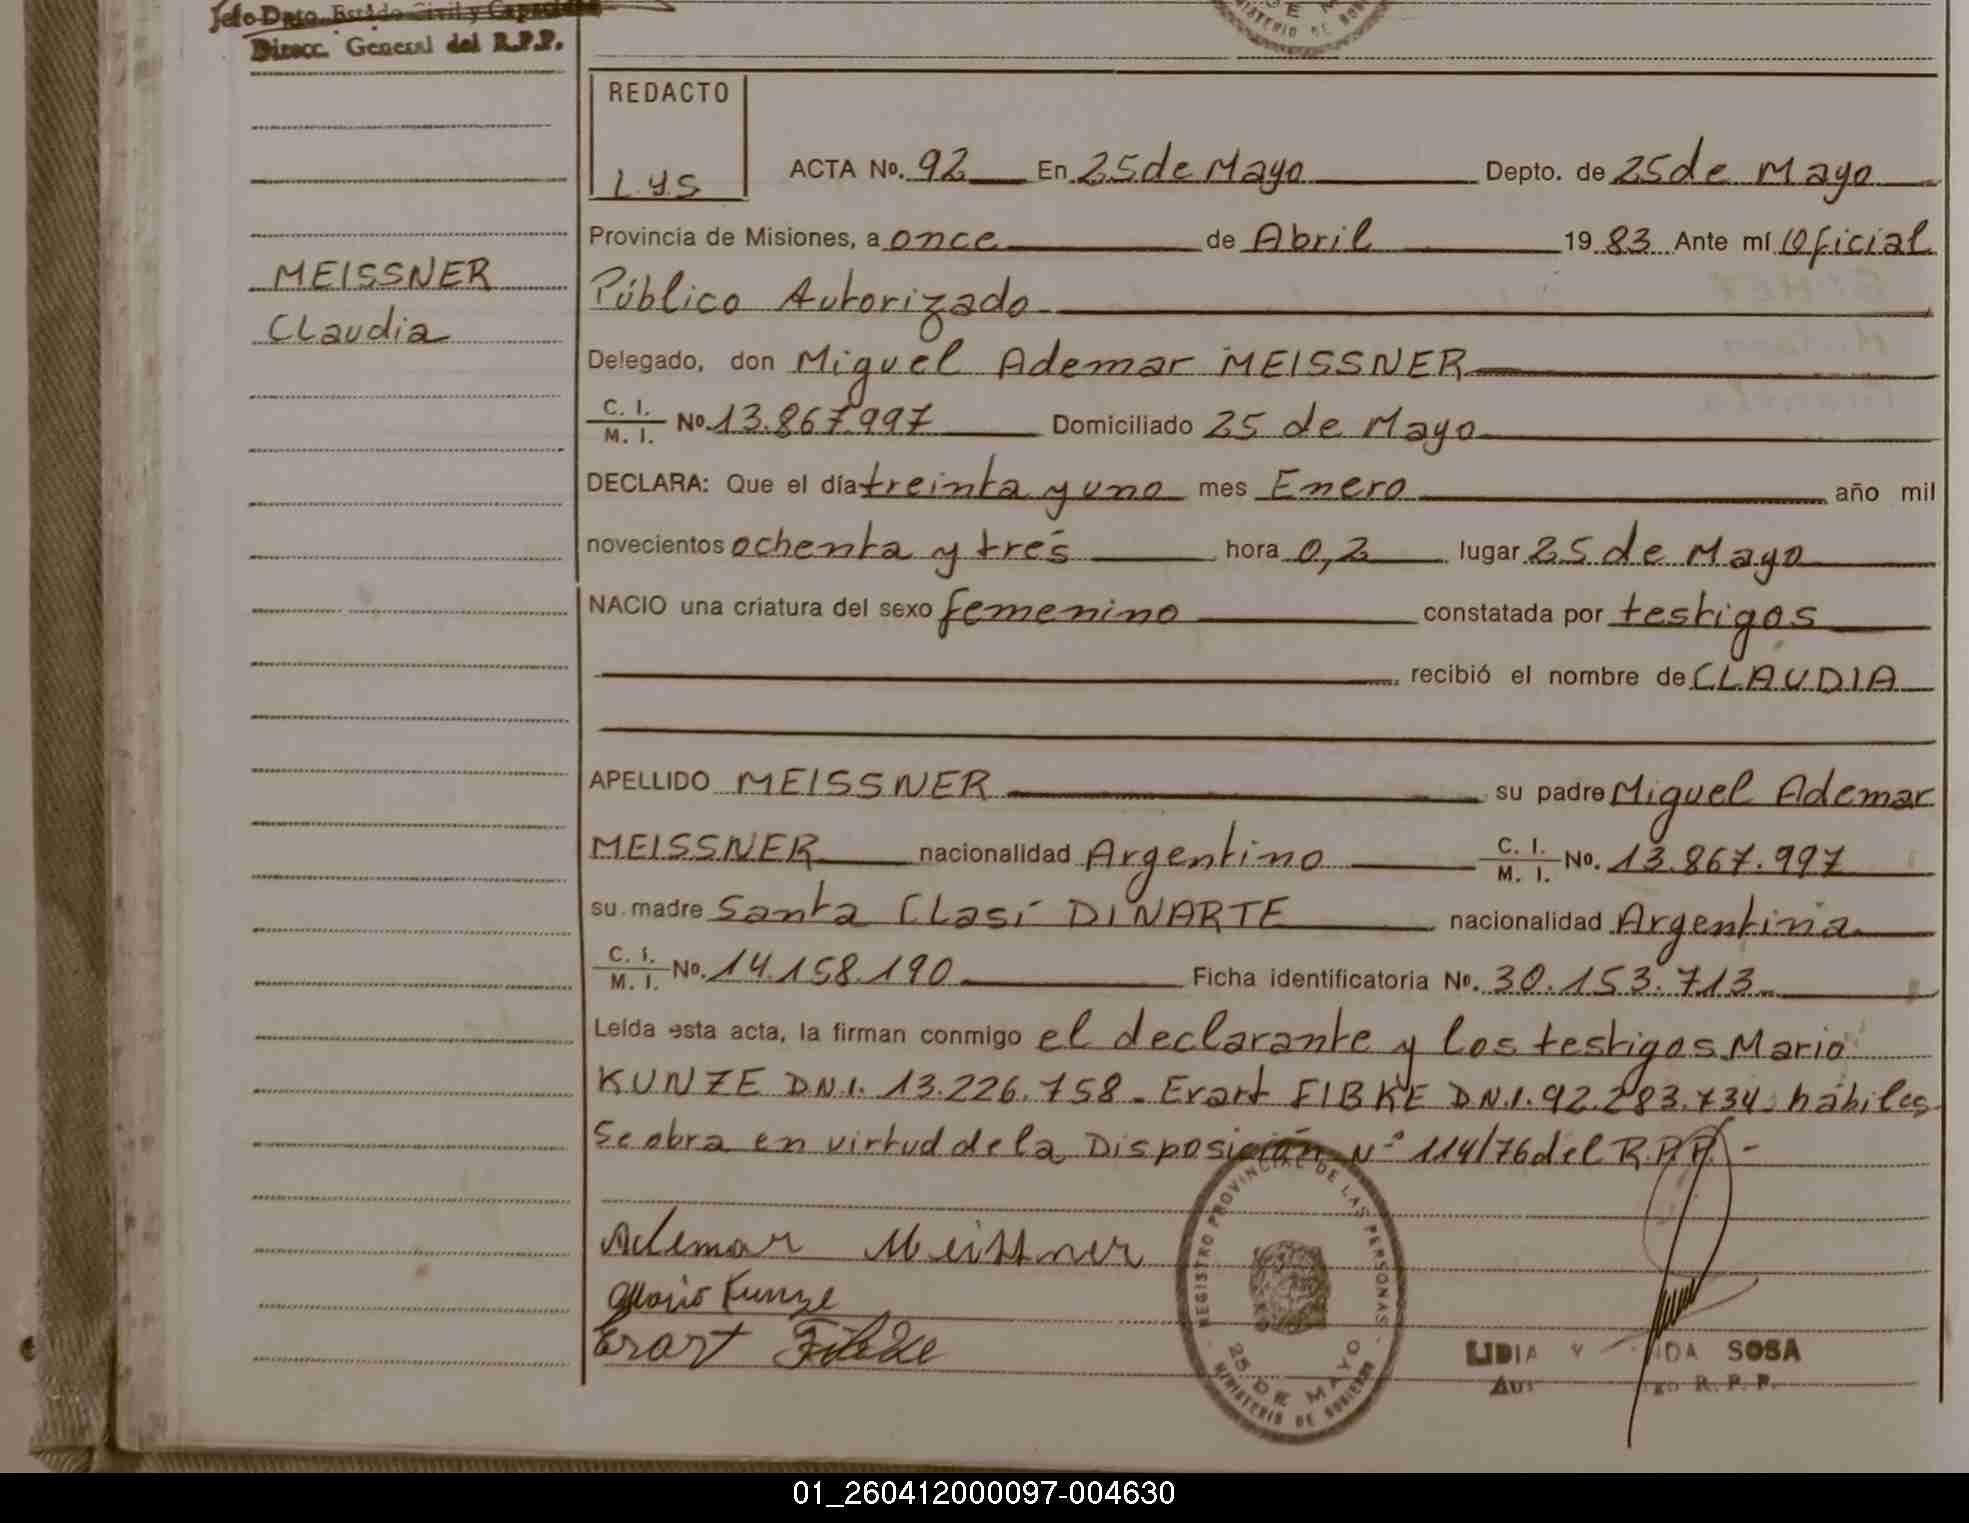 Jefe Dpto. Estado Civil y Capacidad
Direcc. General del R.P.P.
MINISTERIO DE
REDACTO
L.y.S
ACTA No. 92 En 25 de Mayo Depto. de 25 de Mayo
Provincia de Misiones, a once de Abril 19 83 Ante mí Oficial
Público Autorizado
Delegado, don Miguel Ademar MEISSNER
C. I.
M. I. No. 13.867.997 Domiciliado 25 de Mayo
DECLARA: Que el día treinta y uno mes Enero año mil
novecientos ochenta y tres hora 0,2 lugar 25 de Mayo
NACIO una criatura del sexo femenino constatada por testigos
recibió el nombre de CLAUDIA
APELLIDO MEISSNER su padre Miguel Ademar
MEISSNER nacionalidad Argentino C. I.
M. I. No. 13.867.997
su madre Santa Clasí DINARTE nacionalidad Argentina
C. I.
M. I. No. 14.158.190 Ficha identificatoria No. 30.153.713
Leída esta acta, la firman conmigo el declarante y los testigos Mario
KUNZE D.N.I. 13.226.758. Erart FIBKE D.N.I. 92.283.734 hábiles
Se obra en virtud de la Disposición Nº 114/76 del R.P.P. -
Ademar Meissner
Mario Kunze
Erart Fibke
MEISSNER
Claudia
REGISTRO PROVINCIAL DE LAS PERSONAS
25 DE MAYO
MINISTERIO DE GOBIERNO
LIDIA SOSA
R. P. P.
01_260412000097-004630